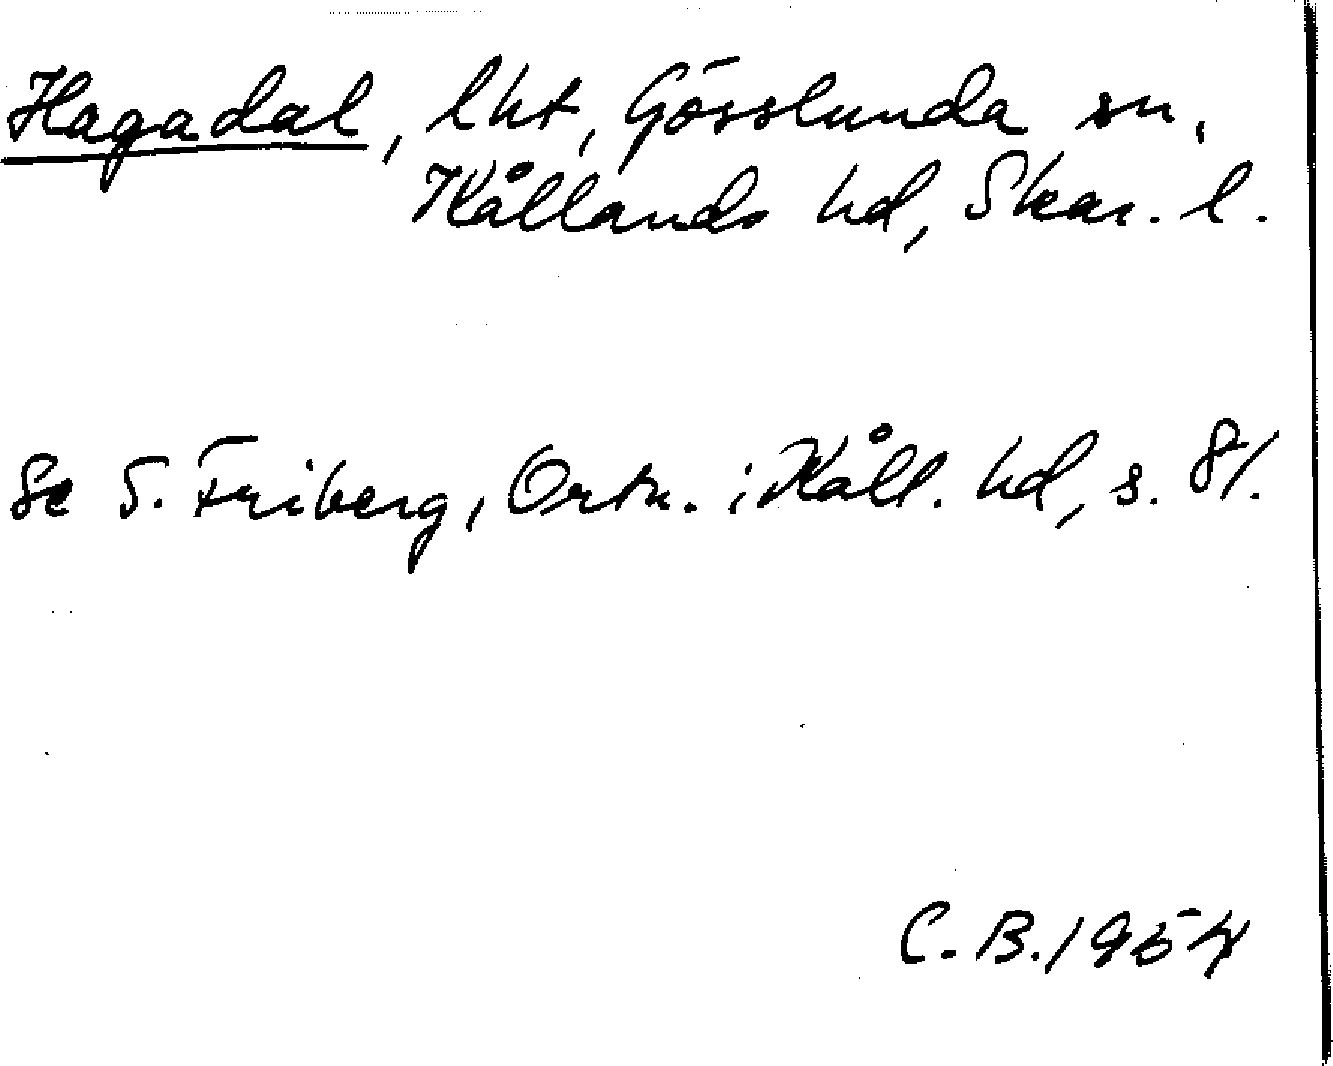 Hagadal, lht, Gösslunda sn,
Kållands hd, Skar. l.
Se S. Friberg, Ortn. i Kåll. hd, s. 81.
C. B. 1954